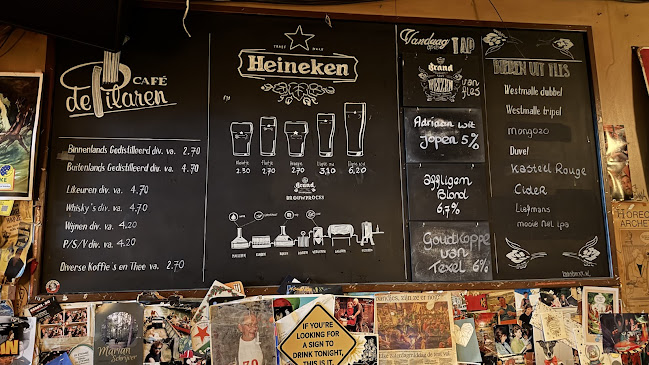 CAFÉ
de Pilaren
Binnenlands Gedistilleerd div. va. 2.70
Buitenlands Gedistilleerd div. va. 4.70
Likeuren div. va. 4.70
Whisky's div. va. 4.70
Wijnen div. va. 4.20
P/S/Y div. va. 4.20
Diverse Koffie's en Thee va. 2.70
TRADE MARK
Heineken
Fluitje
2.30 2.70 2.70 3,10 6,20
Brand
BROUWPROCES
Vandaag TAP
Brand
WEIZEN
van
glas
Adriaan wit
Jopen 5%
Affligem
Blond
6,7%
Goudkoppe
van
Texel 6%
BIEREN UIT FLES
Westmalle dubbel
Westmalle tripel
Mongozo
Duvel
Kasteel Rouge
Cider
Liefmans
moose Nill ipa
IF YOU'RE
LOOKING FOR
A SIGN TO
DRINK TONIGHT,
THIS IS IT.
Marian
Schrijver
HORECA
ARCHE